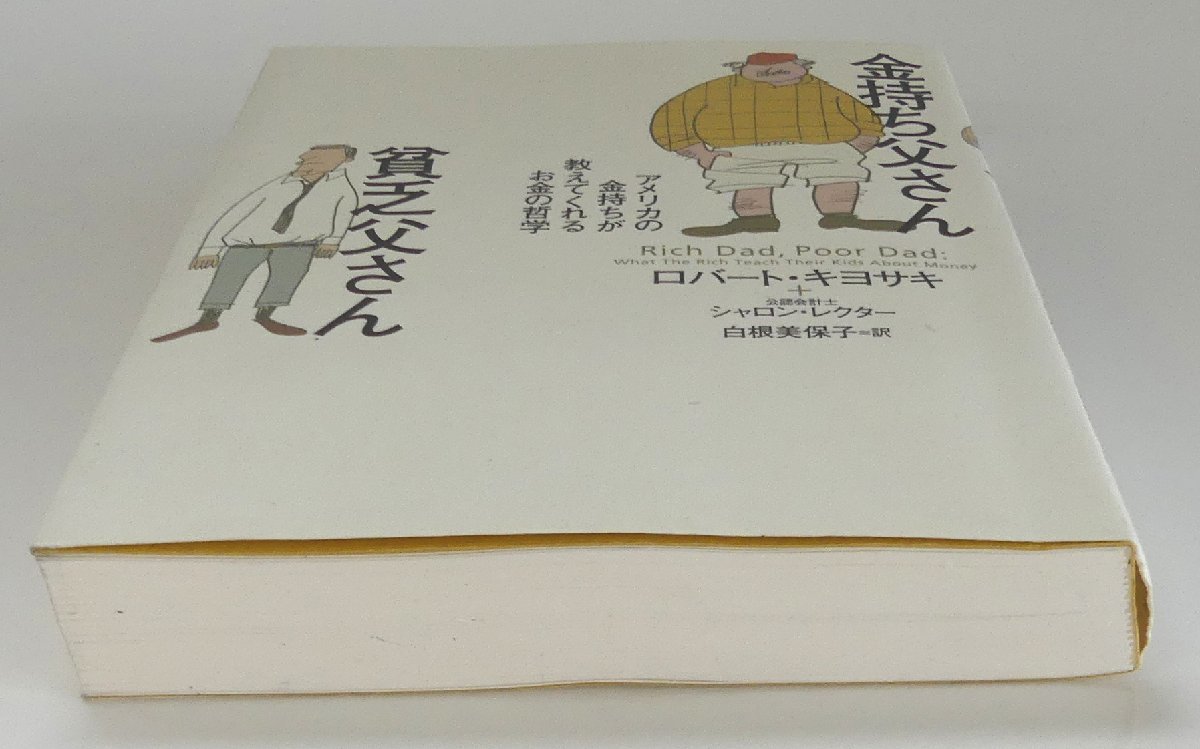 金持ち父さん
貧乏父さん
アメリカの
金持ちが
教えてくれる
お金の哲学
Rich Dad, Poor Dad:
What The Rich Teach Their Kids About Money
ロバート・キヨサキ
+
公認会計士
シャロン・レクター
白根美保子=訳